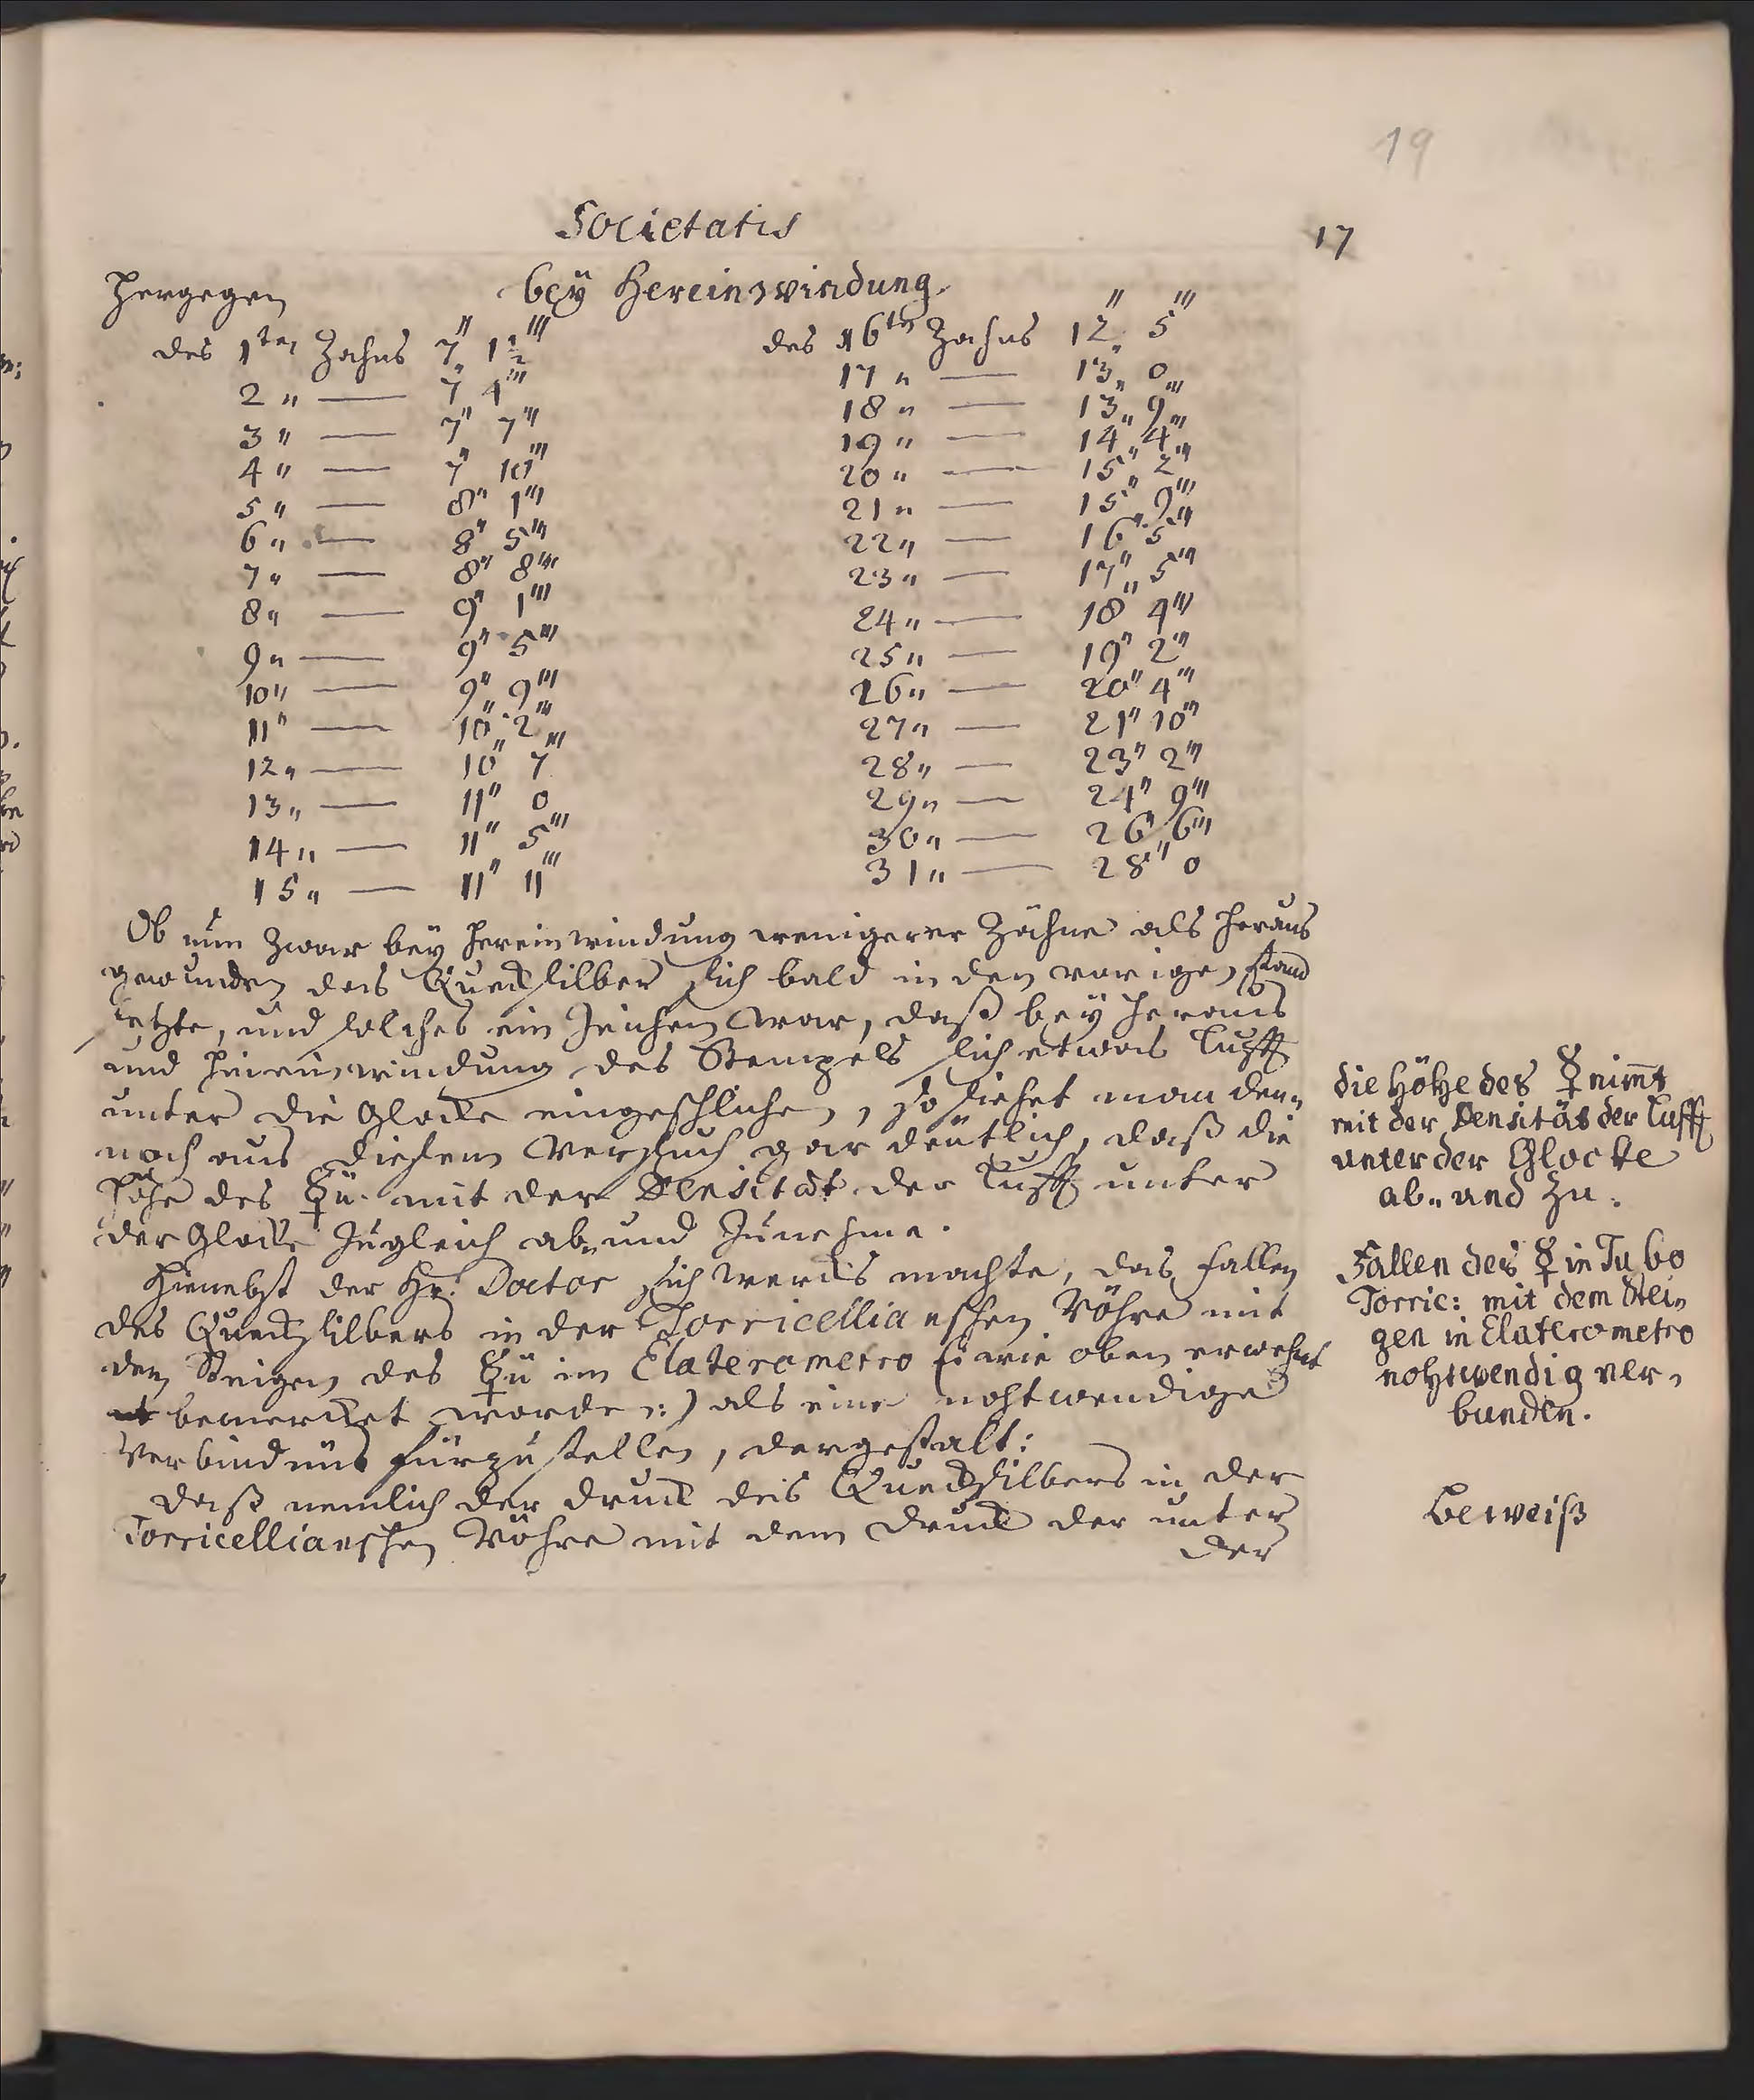 19
Societatis
17
Hergegen bey Hereinwindung.
des 1ten Zahns 7" 1½'''
2 " — 7" 4'''
3 " — 7" 7'''
4 " — 7" 10'''
5 " — 8" 1'''
6 " — 8" 5'''
7 " — 8" 8'''
8 " — 9" 1'''
9 " — 9" 5'''
10 " — 9" 9'''
11 " — 10" 2'''
12 " — 10" 7'''
13 " — 11" 0
14 " — 11" 5'''
15 " — 11" 11'''
des 16ten Zahns 12" 5'''
17 " — 13" 0
18 " — 13" 9'''
19 " — 14" 4'''
20 " — 15" 2'''
21 " — 15" 9'''
22 " — 16" 5'''
23 " — 17" 5'''
24 " — 18" 4'''
25 " — 19" 2'''
26 " — 20" 4'''
27 " — 21" 10'''
28 " — 23" 2'''
29 " — 24" 9'''
30 " — 26" 6'''
31 " — 28" 0
Ob nun zwar bey hereinwindung wenigerer Zähne als heraus
gewunden das Quecksilber sich bald in den vorigen stand
setzte, und solches ein Zeichen war, daß bey heraus
und hineinwindung des Stempels sich etwas Lufft
unter die Glocke eingeschlichen, so siehet man den„
noch aus diesem Versuch gar deutlich, daß die
Höhe des ☿ii. mit der Densität der Lufft unter
der Glocke zugleich ab„ und zunehme.
Hienebst der Hr: Doctor sich werckis machte, das fallen
des Quecksilbers in der Torricellianschen Röhre mit
dem Steigen des ☿ii im Elaterometro (: wie oben erwehnt
bemercket worden :) als eine nohtwendige
Verbindnüß fürzustellen, dergestalt:
daß nemlich der druck des Quecksilbers in der
Torricellianschen Röhre mit dem druck der unter
der
die Höhe des ☿ nim̄t
mit der Densität der Lufft
unter der Glocke
ab„ und zu.
Fallen des ☿ in Tubo
Torric: mit dem Stei„
gen in Elaterometro
nohtwendig ver„
bunden.
Beweiß